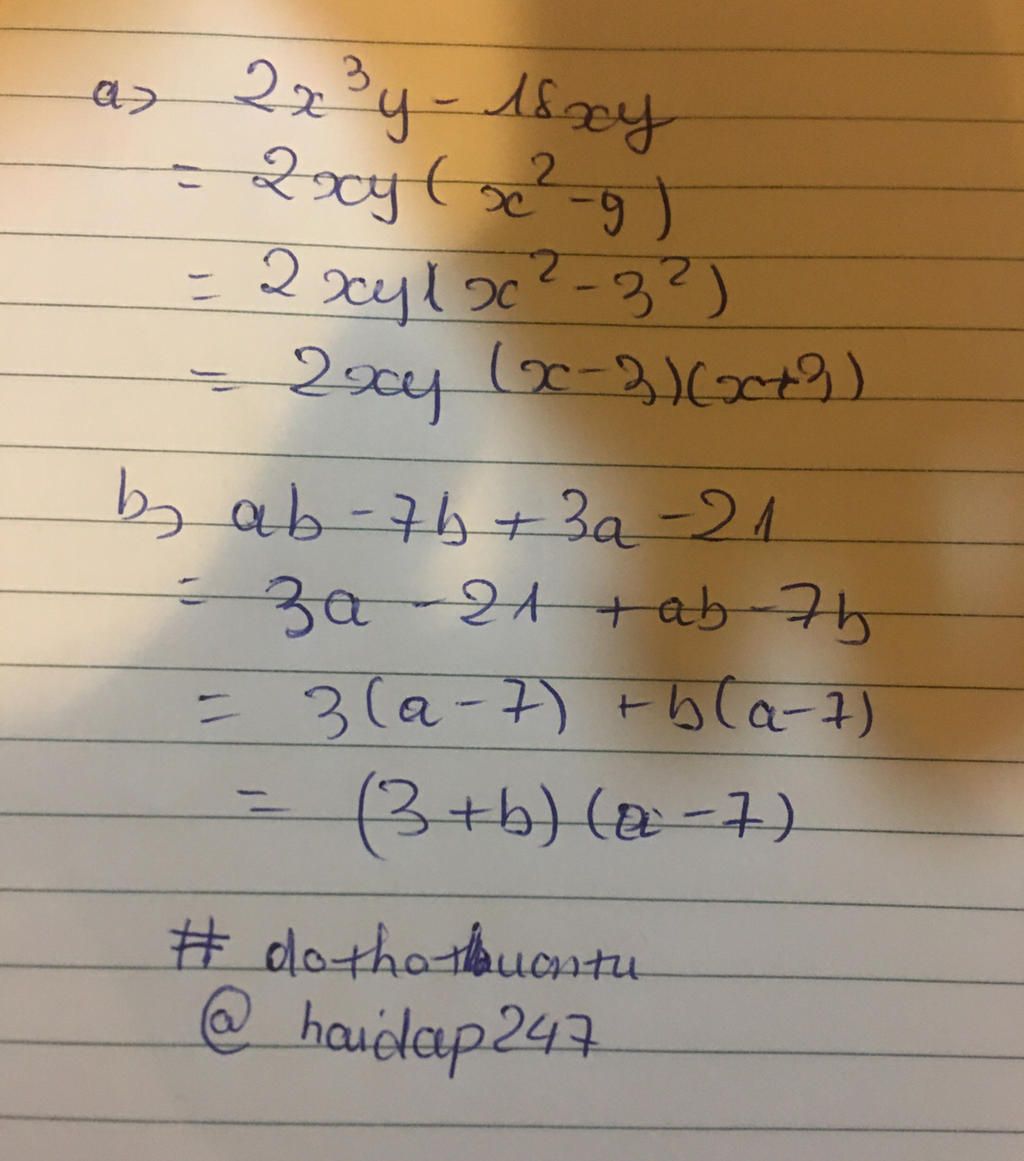 a> 2x³y - 18xy
= 2xy(x² - 9)
= 2xy(x² - 3²)
= 2xy (x - 3)(x + 3)
b, ab - 7b + 3a - 21
= 3a - 21 + ab - 7b
= 3(a - 7) + b(a - 7)
= (3 + b)(a - 7)
# dothothuantu
@ haidap247